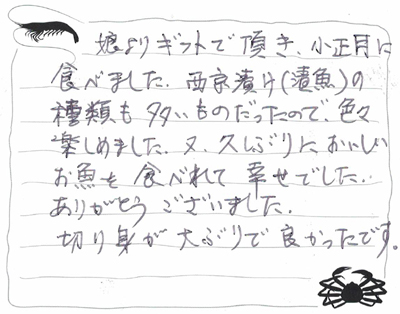 娘よりギフトで頂き、小正月に
食べました。西京漬け(漬魚)の
種類も多いものだったので、色々
楽しめました。又、久しぶりにおいしい
お魚を食べれて幸せでした。
ありがとうございました。
切り身が大ぶりで良かったです。